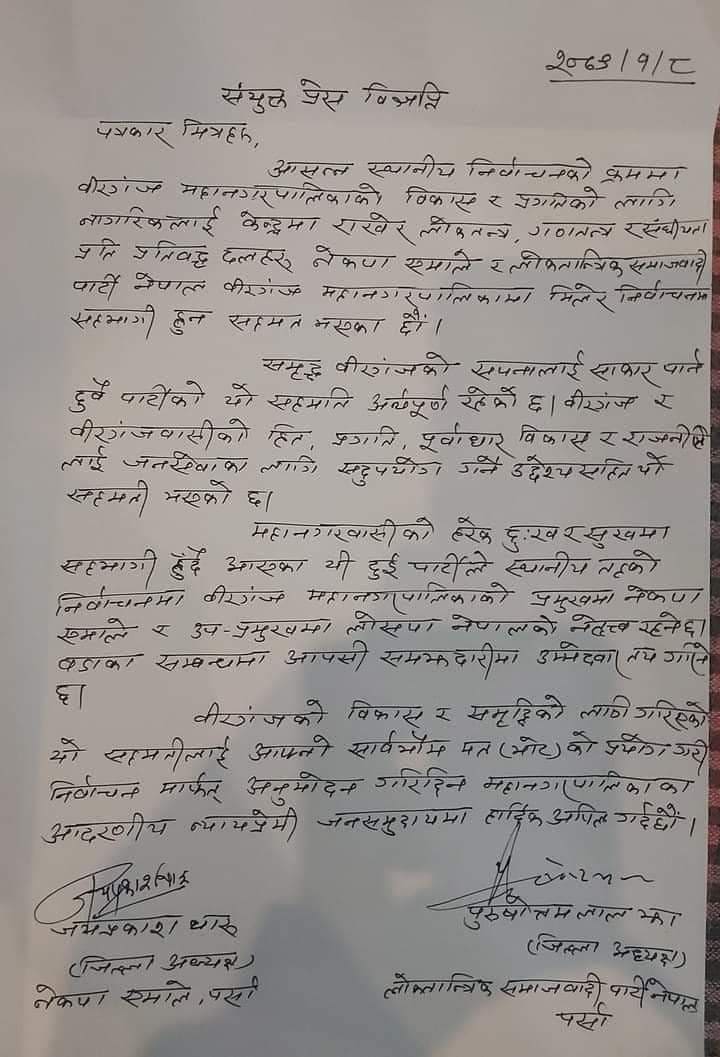 २०७९/१/८
संयुक्त प्रेस विज्ञप्ति
पत्रकार मित्रहरु,
आसन्न स्थानीय निर्वाचनको क्रममा
वीरगंज महानगरपालिकाको विकास र प्रगतिको लागि
नागरिकलाई केन्द्रमा राखेर लोकतन्त्र, गणतन्त्र र संघीयता
प्रति प्रतिवद्ध दलहरु नेकपा एमाले र लोकतान्त्रिक समाजवादी
पार्टी नेपाल वीरगंज महानगरपालिकामा मिलेर निर्वाचनमा
सहभागी हुन सहमत भएका छौं ।
समृद्ध वीरगंजको सपनालाई साकार पार्न
दुवै पार्टीको यो सहमति अर्थपूर्ण रहेको छ। वीरगंज र
वीरगंजवासीको हित, प्रगति, पूर्वाधार विकास र राजनीति
लाई जनसेवाका लागि सदुपयोग गर्ने उद्देश्य सहित यो
सहमती भएको छ।
महानगरवासीको हरेक दुःख र सुखमा
सहभागी हुँदै आएका यी दुई पार्टीले स्थानीय तहको
निर्वाचनमा वीरगंज महानगरपालिकाको प्रमुखमा नेकपा
एमाले र उप-प्रमुखमा लोसपा नेपालको नेतृत्व रहनेछ।
वडाका सम्बन्धमा आपसी समझदारीमा उम्मेदवार तय गरिने
छ।
वीरगंजको विकास र समृद्धिको लागी गरिएको
यो सहमतीलाई आफ्नो सार्वभौम मत (भोट) को प्रयोग गरी
निर्वाचन मार्फत् अनुमोदन गरिदिन महानगरपालिकाका
आदरणीय न्यायप्रेमी जनसमुदायमा हार्दिक अपिल गर्दछौं ।
जयप्रकाश थारु
पुरुषोत्तम लाल झा
(जिल्ला अध्यक्ष)
(जिल्ला अध्यक्ष)
नेकपा एमाले, पर्सा
लोकतान्त्रिक समाजवादी पार्टी नेपाल
पर्सा